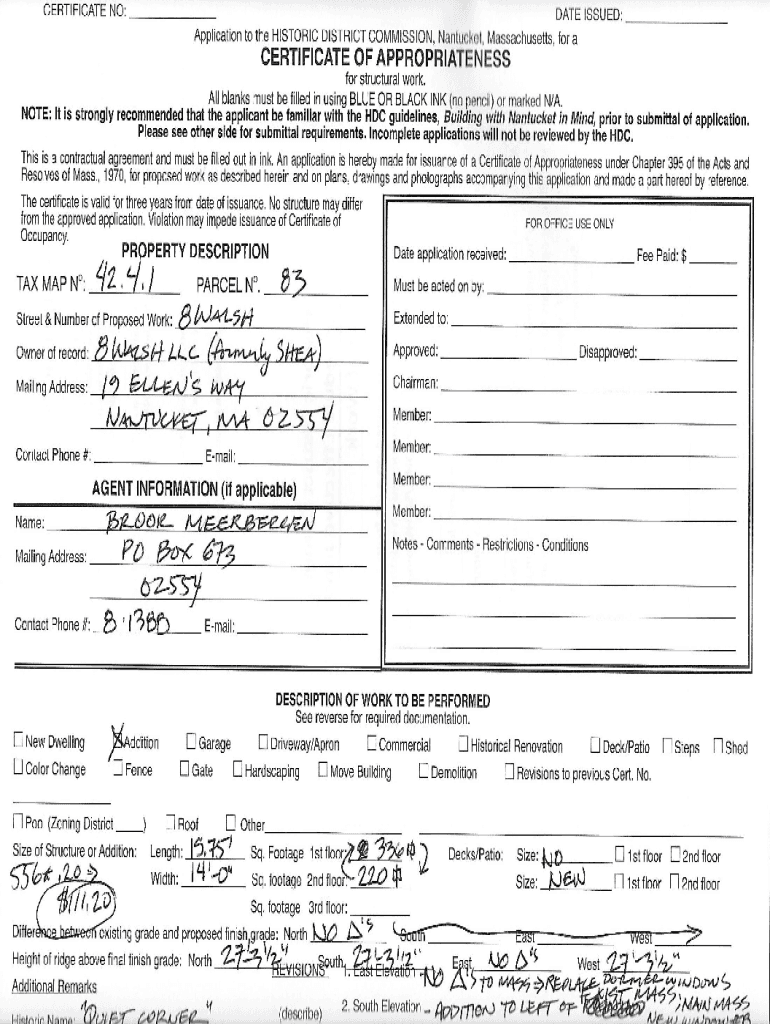 CERTIFICATE NO: DATE ISSUED:
Application to the HISTORIC DISTRICT COMMISSION, Nantucket, Massachusetts, for a
CERTIFICATE OF APPROPRIATENESS
for structural work.
All blanks must be filled in using BLUE OR BLACK INK (no pencil) or marked N/A.
NOTE: It is strongly recommended that the applicant be familiar with the HDC guidelines, Building with Nantucket in Mind, prior to submittal of application.
Please see other side for submittal requirements. Incomplete applications will not be reviewed by the HDC.
This is a contractual agreement and must be filled out in ink. An application is hereby made for issuance of a Certificate of Appropriateness under Chapter 395 of the Acts and
Resolves of Mass., 1970, for proposed work as described herein and on plans, drawings and photographs accompanying this application and made a part hereof by reference.
The certificate is valid for three years from date of issuance. No structure may differ
from the approved application. Violation may impede issuance of Certificate of
Occupancy.
PROPERTY DESCRIPTION
TAX MAP Nº: 42.4.1 PARCEL Nº. 83
Street & Number of Proposed Work: 8 WALSH
Owner of record: 8 WALSH LLC (formerly SHEA)
Mailing Address: 19 ELLEN'S WAY
NANTUCKET, MA 02554
Contact Phone #: E-mail:
AGENT INFORMATION (if applicable)
Name: BROOR MEERBERGEN
Mailing Address: PO BOX 673
02554
Contact Phone #: 8·1388 E-mail:
FOR OFFICE USE ONLY
Date application received: Fee Paid: $
Must be acted on by:
Extended to:
Approved: Disapproved:
Chairman:
Member:
Member:
Member:
Member:
Notes - Comments - Restrictions - Conditions
DESCRIPTION OF WORK TO BE PERFORMED
See reverse for required documentation.
New Dwelling Addition Garage Driveway/Apron Commercial Historical Renovation Deck/Patio Steps Shed
Color Change Fence Gate Hardscaping Move Building Demolition Revisions to previous Cert. No.
Pool (Zoning District ) Roof Other
Size of Structure or Addition: Length: 15.75' Sq. Footage 1st floor: 336 Decks/Patio: Size: NO 1st floor 2nd floor
556 × .20 ⇒ Width: 14'-0" Sq. footage 2nd floor: 220 Size: NEW 1st floor 2nd floor
$111.20 Sq. footage 3rd floor:
Difference between existing grade and proposed finish grade: North NO Δ'S South East West
Height of ridge above final finish grade: North 27'-3½" South 27'-3½" East NO Δ'S West 27'-3½"
REVISIONS 1. East Elevation NO Δ'S TO MASS ⇒ REPLACE DORMER WINDOWS
Additional Remarks EXIST MASS; MAIN MASS
Historic Name: "QUIET CORNER" (describe) 2. South Elevation - ADDITION TO LEFT OF